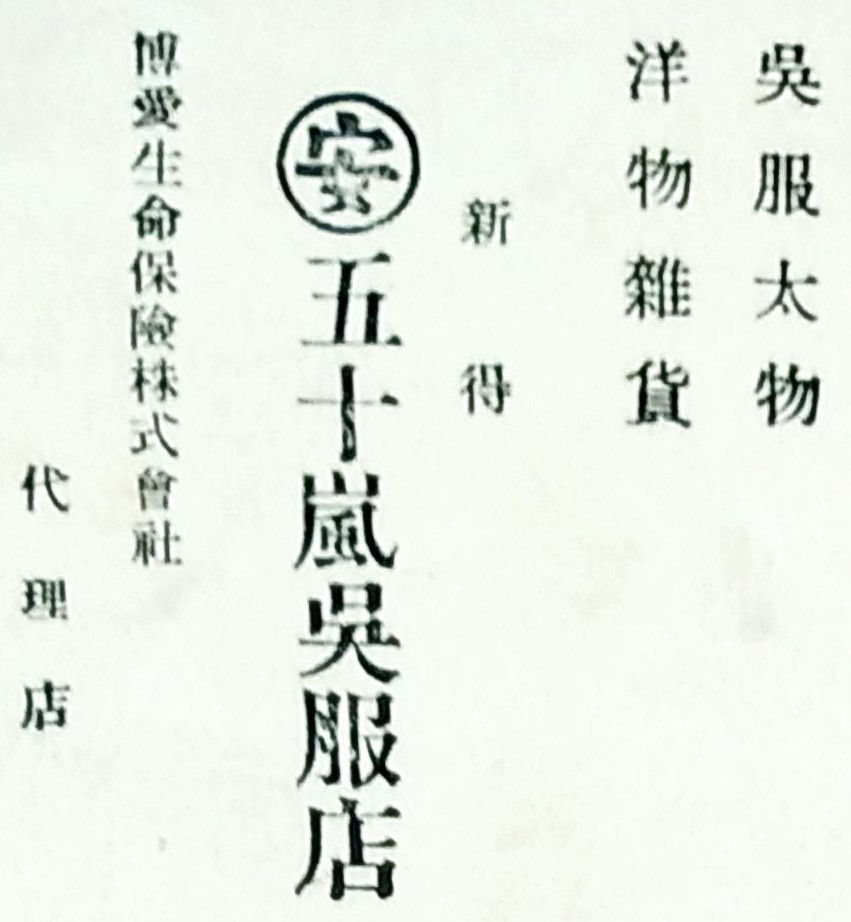 吳服太物
洋物雜貨
新得
安 五十嵐吳服店
博愛生命保險株式會社
代理店